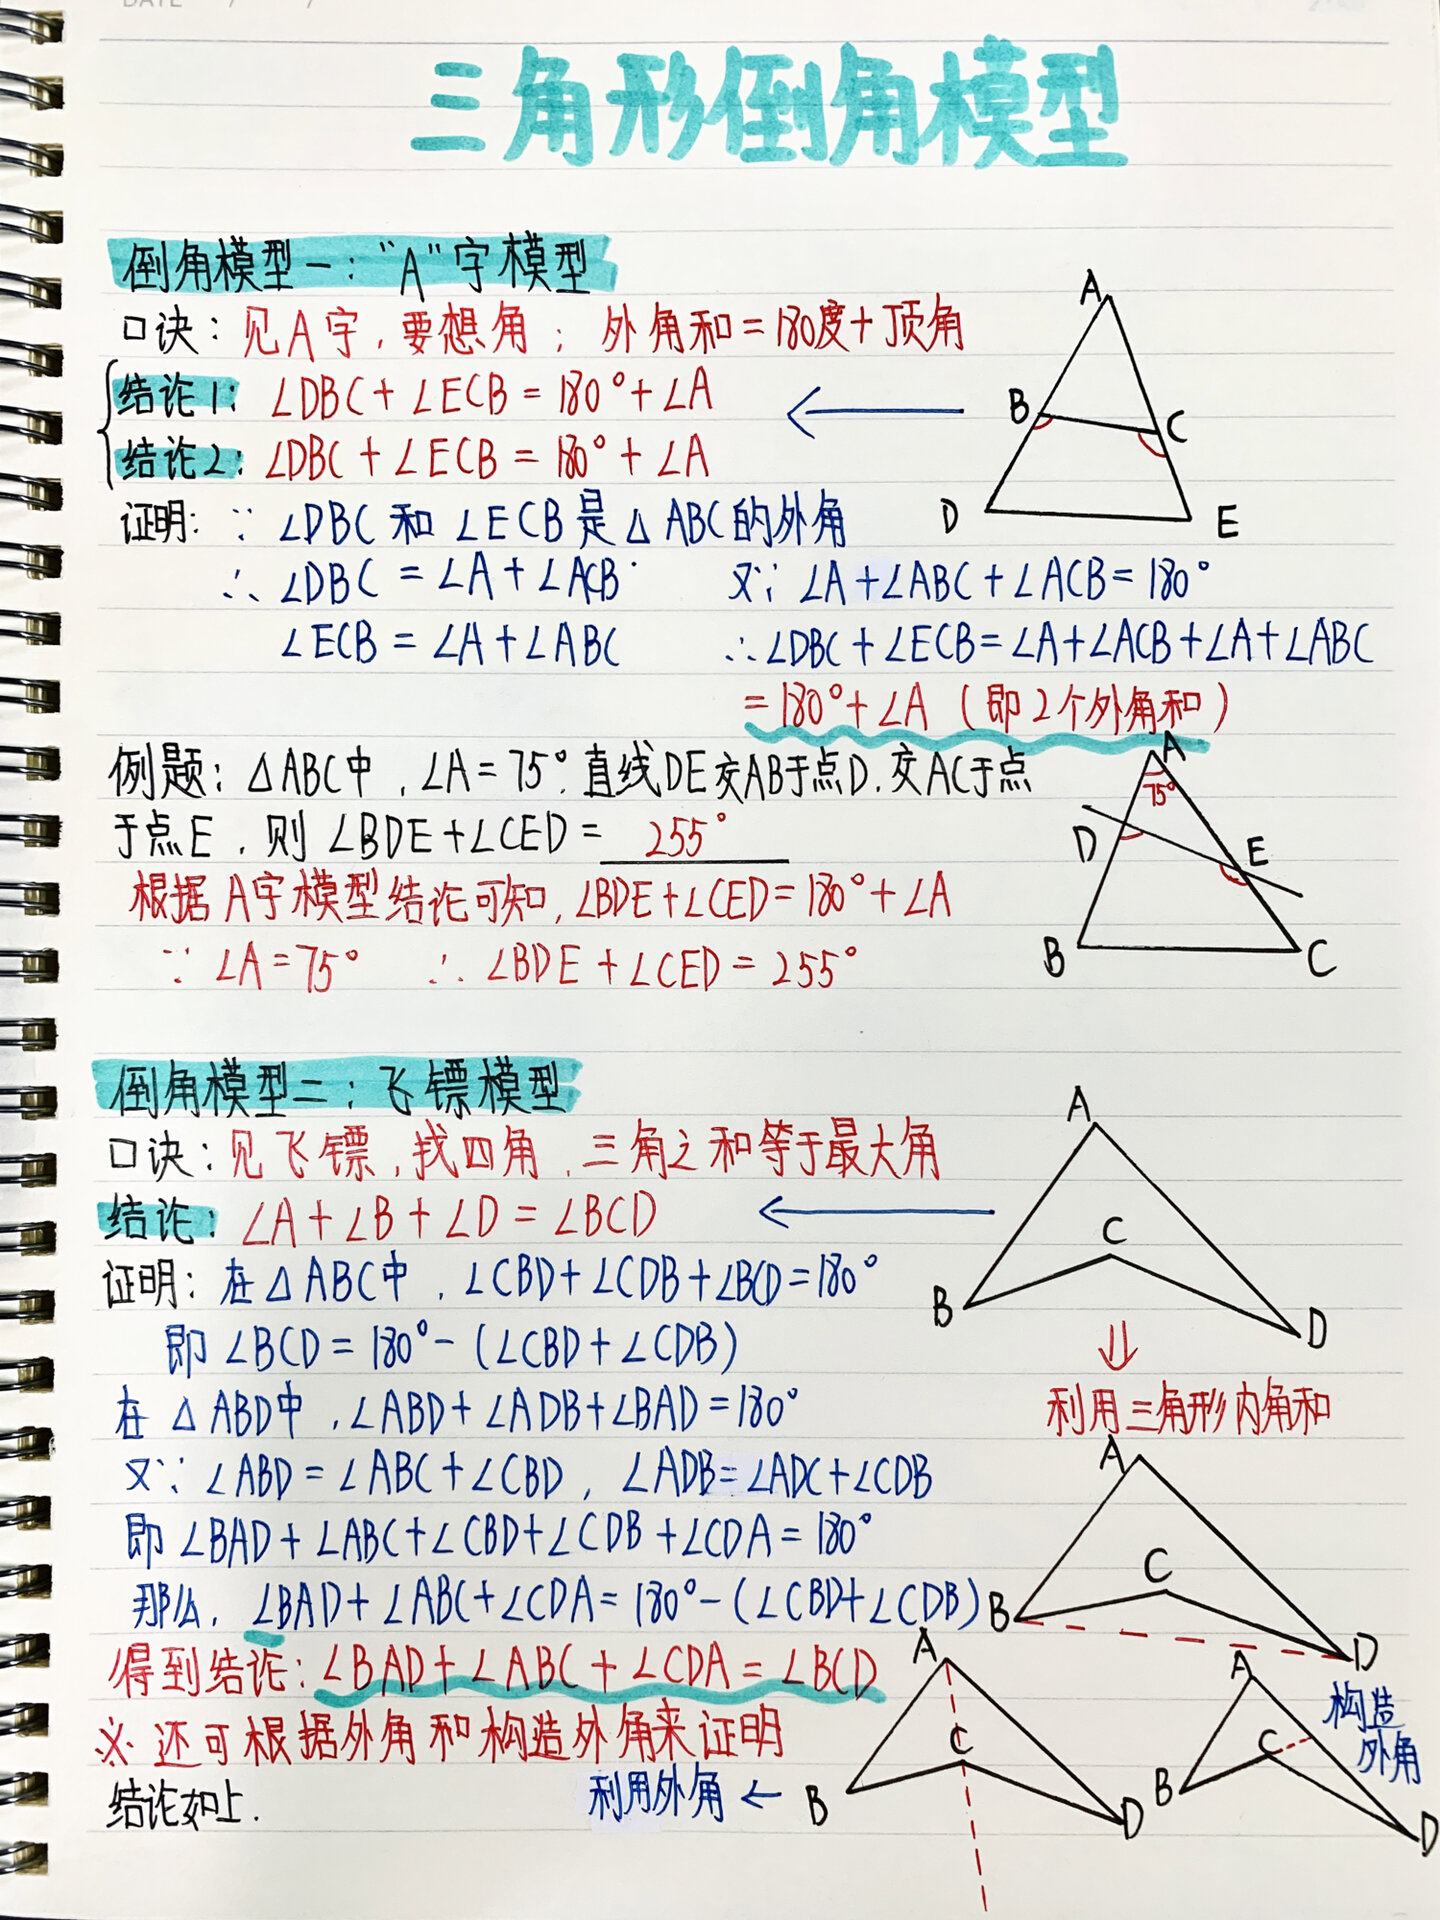 DATE / /
三角形倒角模型
倒角模型一："A"字模型
口诀：见A字，要想角；外角和=180度+顶角
结论1：∠DBC+∠ECB=180°+∠A
结论2：∠DBC+∠ECB=180°+∠A
A
B
C
D
E
证明：∵ ∠DBC和∠ECB是△ABC的外角
∴ ∠DBC=∠A+∠ACB 又∵ ∠A+∠ABC+∠ACB=180°
∠ECB=∠A+∠ABC ∴∠DBC+∠ECB=∠A+∠ACB+∠A+∠ABC
=180°+∠A（即2个外角和）
例题：△ABC中，∠A=75°.直线DE交AB于点D.交AC于点
于点E，则∠BDE+∠CED=255°
根据A字模型结论可知,∠BDE+∠CED=180°+∠A
∵ ∠A=75° ∴ ∠BDE+∠CED=255°
A
75°
D
E
B
C
倒角模型二：飞镖模型
口诀：见飞镖,找四角,三角之和等于最大角
结论：∠A+∠B+∠D=∠BCD
证明：在△ABC中，∠CBD+∠CDB+∠BCD=180°
即∠BCD=180°-(∠CBD+∠CDB)
在△ABD中,∠ABD+∠ADB+∠BAD=180°
又∵ ∠ABD=∠ABC+∠CBD，∠ADB=∠ADC+∠CDB
即∠BAD+∠ABC+∠CBD+∠CDB+∠CDA=180°
那么，∠BAD+∠ABC+∠CDA=180°-(∠CBD+∠CDB)
得到结论：∠BAD+∠ABC+∠CDA=∠BCD
※还可根据外角和构造外角来证明
结论如上.
A
C
B
D
利用三角形内角和
A
C
B
D
利用外角←
A
C
B
D
A
C
B
D
构造
外角